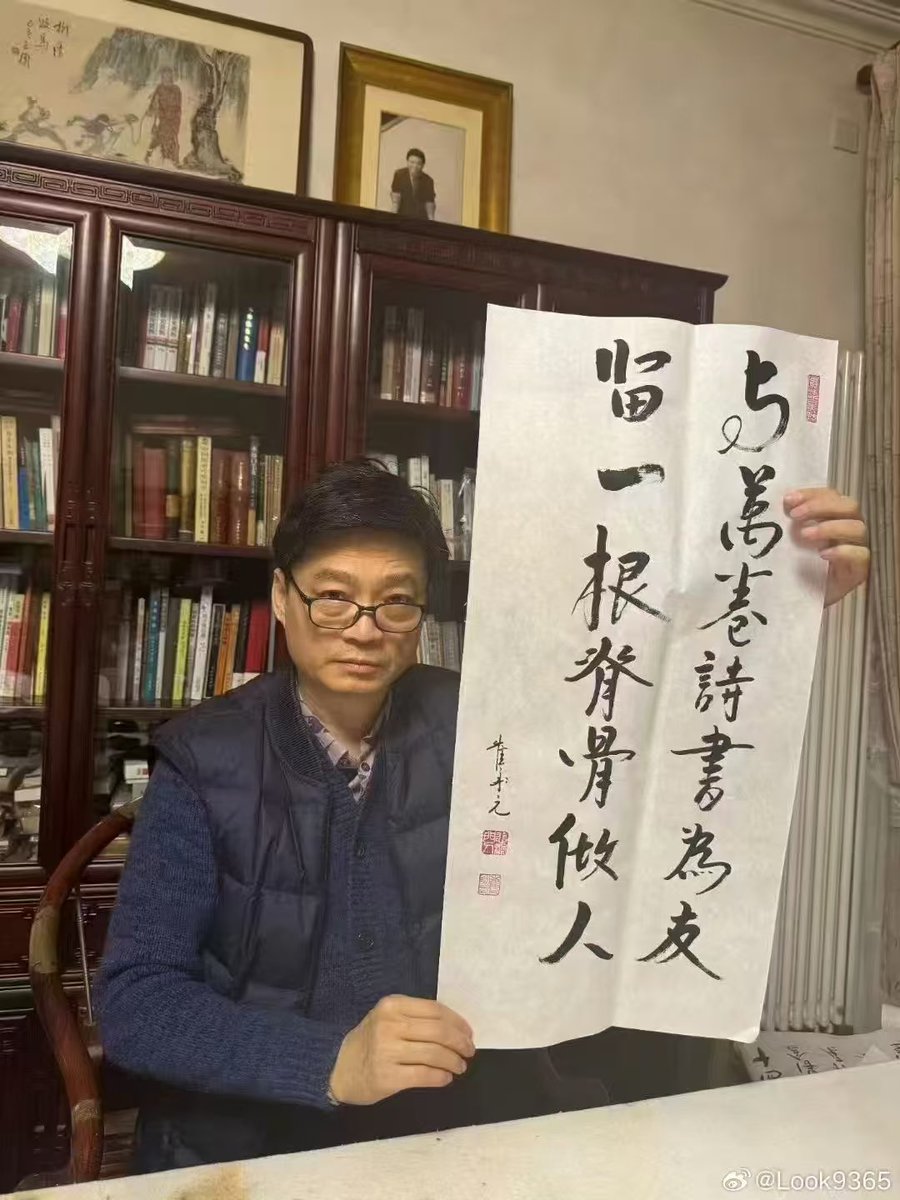 与萬卷詩書為友
留一根脊骨做人
崔永元
@Look9365